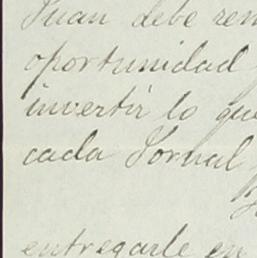 Juan debe
oportunidad
invertir lo que
cada Jornal
entregarle en